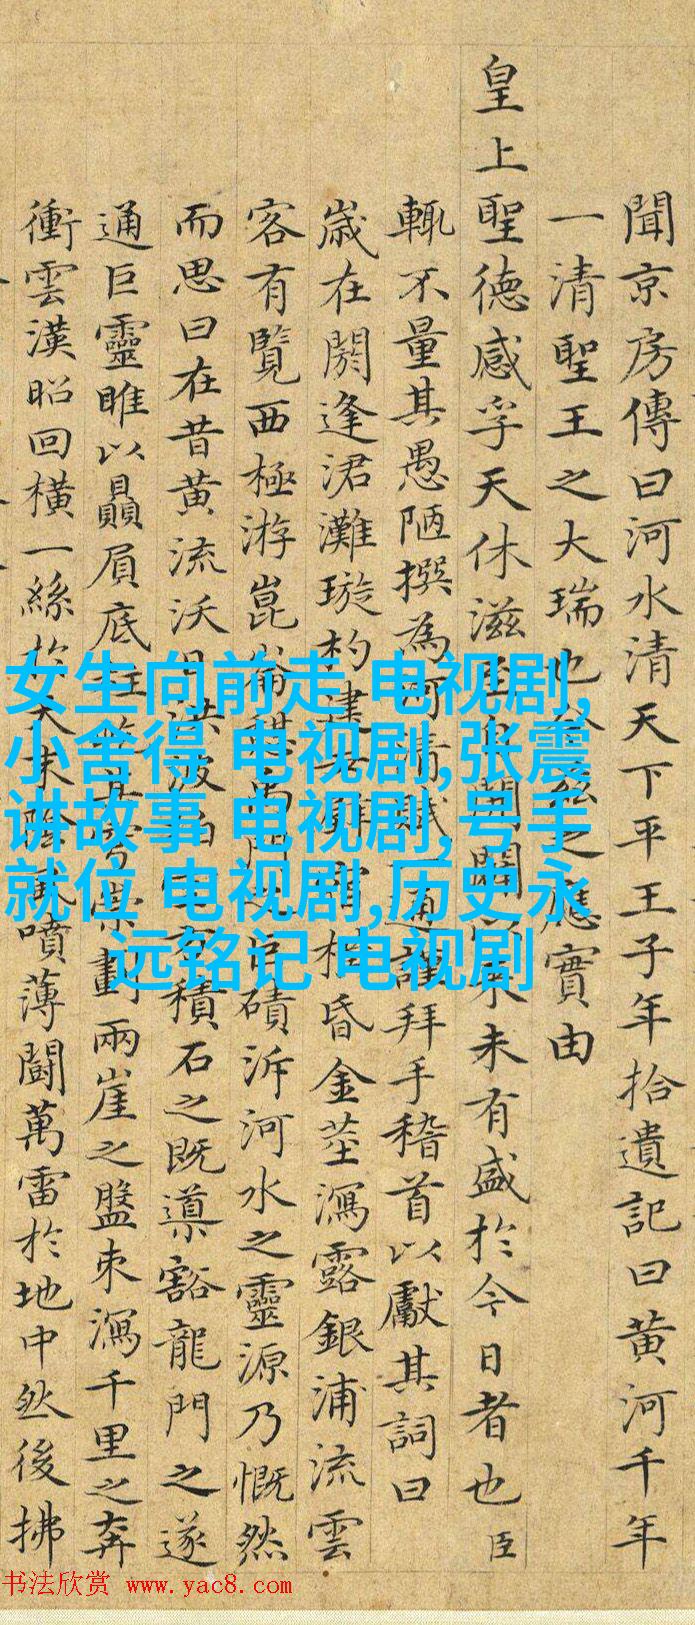 聞京房傳曰河水清天下平王子年拾遺記曰黄河千年
一清聖王之大瑞也
應實由
皇上聖德感孚天休滋至
開闢以来未有盛於今日者也臣
輒不量其愚陋撰為河清賦一通謹拜手稽首以獻其詞曰
歳在閼逢涒灘璇杓建
昏金莖瀉露銀浦流雲
客有覧西極游崑崙
磧泝河水之靈源乃慨然
而思曰在昔黄流沃日洪波
積石之既導豁龍門之遂
通巨靈雎以贔屓底
劃兩崖之盤束瀉千里之奔
衝雲漢昭回横一絲於天末
噴薄鬪萬雷於地中然後拂
女生向前走 电视剧,
小舍得 电视剧,张震
讲故事 电视剧,号手
就位 电视剧,历史永
远铭记 电视剧
书法欣赏 www.yac8.com